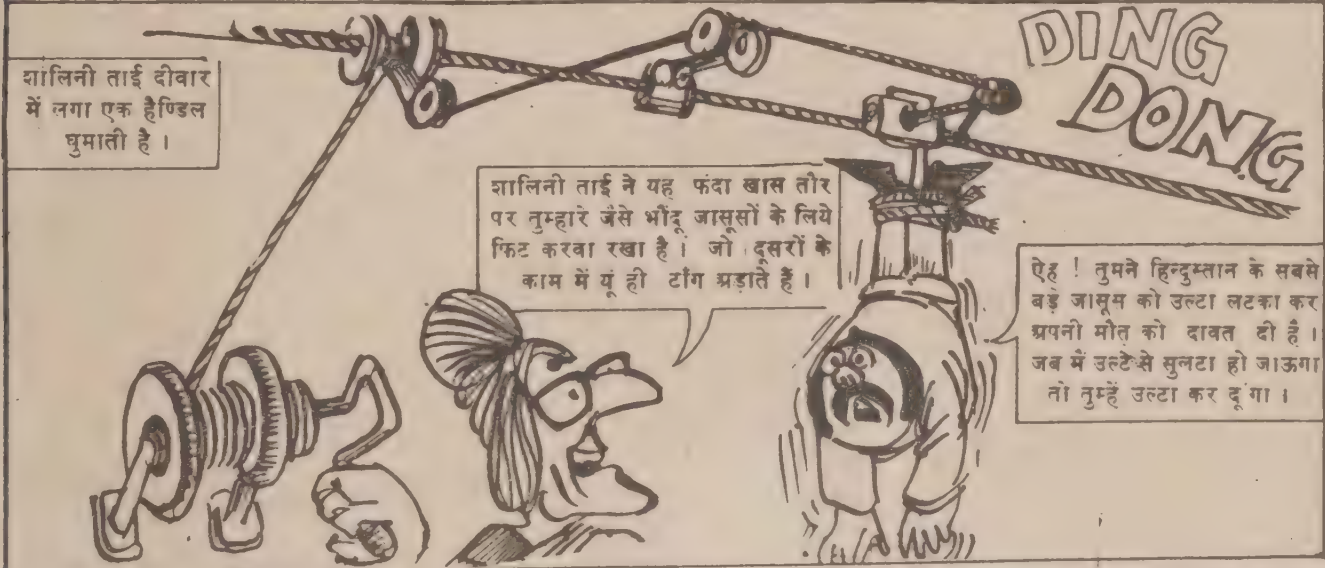 शालिनी ताई दीवार
में लगा एक हैण्डिल
घुमाती है ।
DING
DONG
शालिनी ताई ने यह फंदा खास तौर
पर तुम्हारे जैसे भौंदू जासूसों के लिये
फिट करवा रखा है । जो दूसरों के
काम में यूं ही टाँग अड़ाते हैं ।
ऐह ! तुमने हिन्दुस्तान के सबसे
बड़े जासूस को उल्टा लटका कर
अपनी मौत को दावत दी है ।
जब मैं उल्टे से सुलटा हो जाऊगा
तो तुम्हें उल्टा कर दूंगा ।